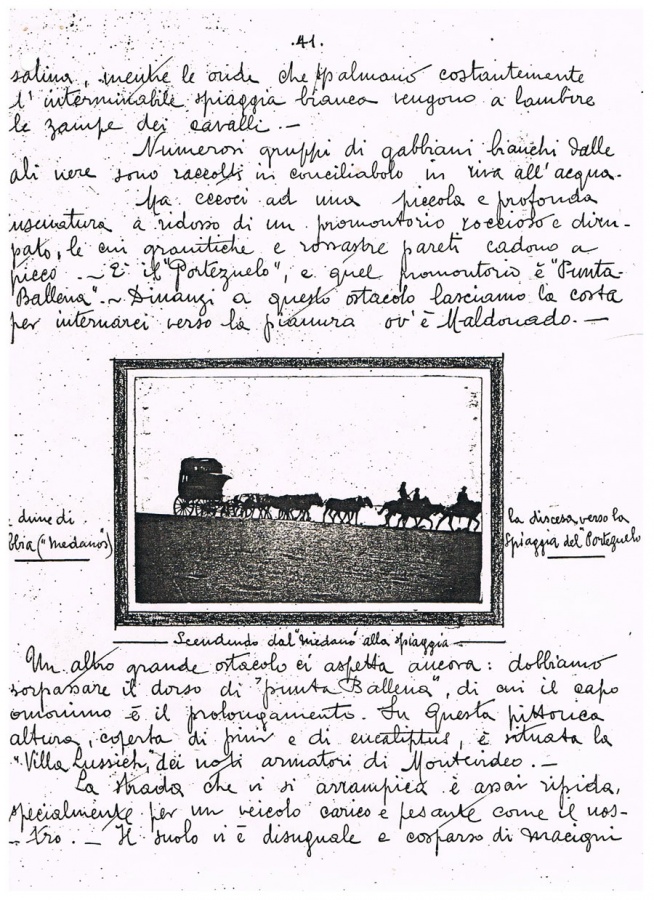 .41.
salina, mentre le onde che spalmano costantemente
l'interminabile spiaggia bianca vengono a lambire
le zampe dei cavalli. —
Numerosi gruppi di gabbiani bianchi dalle
ali nere sono raccolti in conciliabolo in riva all'acqua.
Ma eccoci ad una piccola e profonda
insenatura a ridosso di un promontorio roccioso e diru-
pato, le cui granitiche e rossastre pareti cadono a
picco. ~ E' il "Portezuelo", e quel promontorio è "Punta-
Ballena". ~ Dinanzi a questo ostacolo lasciamo la costa
per internarci verso la pianura ov'è Maldonado. —
dune di
bbia ("Medanos")
la discesa verso la
spiaggia del "Portezuelo
Scendendo dal "medano" alla spiaggia
Un altro grande ostacolo ci aspetta ancora: dobbiamo
sorpassare il dorso di "punta Ballena", di cui il capo
omonimo è il prolungamento. Su questa pittorica
altura, coperta di pini e di eucaliptus, è situata la
"Villa Lussich," dei noti armatori di Montevideo. —
La strada che vi si arrampica è assai ripida,
specialmente per un veicolo carico e pesante come il nos-
- tro. — Il suolo vi è disuguale e cosparso di macigni